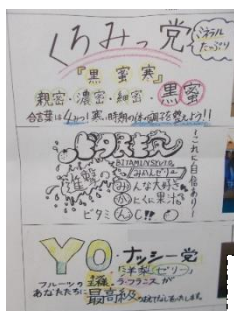 くろみっ党
ミネラル
たっぷり
『黒蜜寒』
親密・濃密・細密・黒蜜
合言葉は4みつ!寒い時期の体の調子を整えよう!!
ビタ民主党
BITAMINSYUTO
進撃の
みかんゼリー
みんな大好き
かにくに果汁
ビタミん C!!
これに自信あり〜
YO・ナッシー党
洋梨ゼリー
フルーツの王様、ラ・フランスが
あなたたちに最高級の